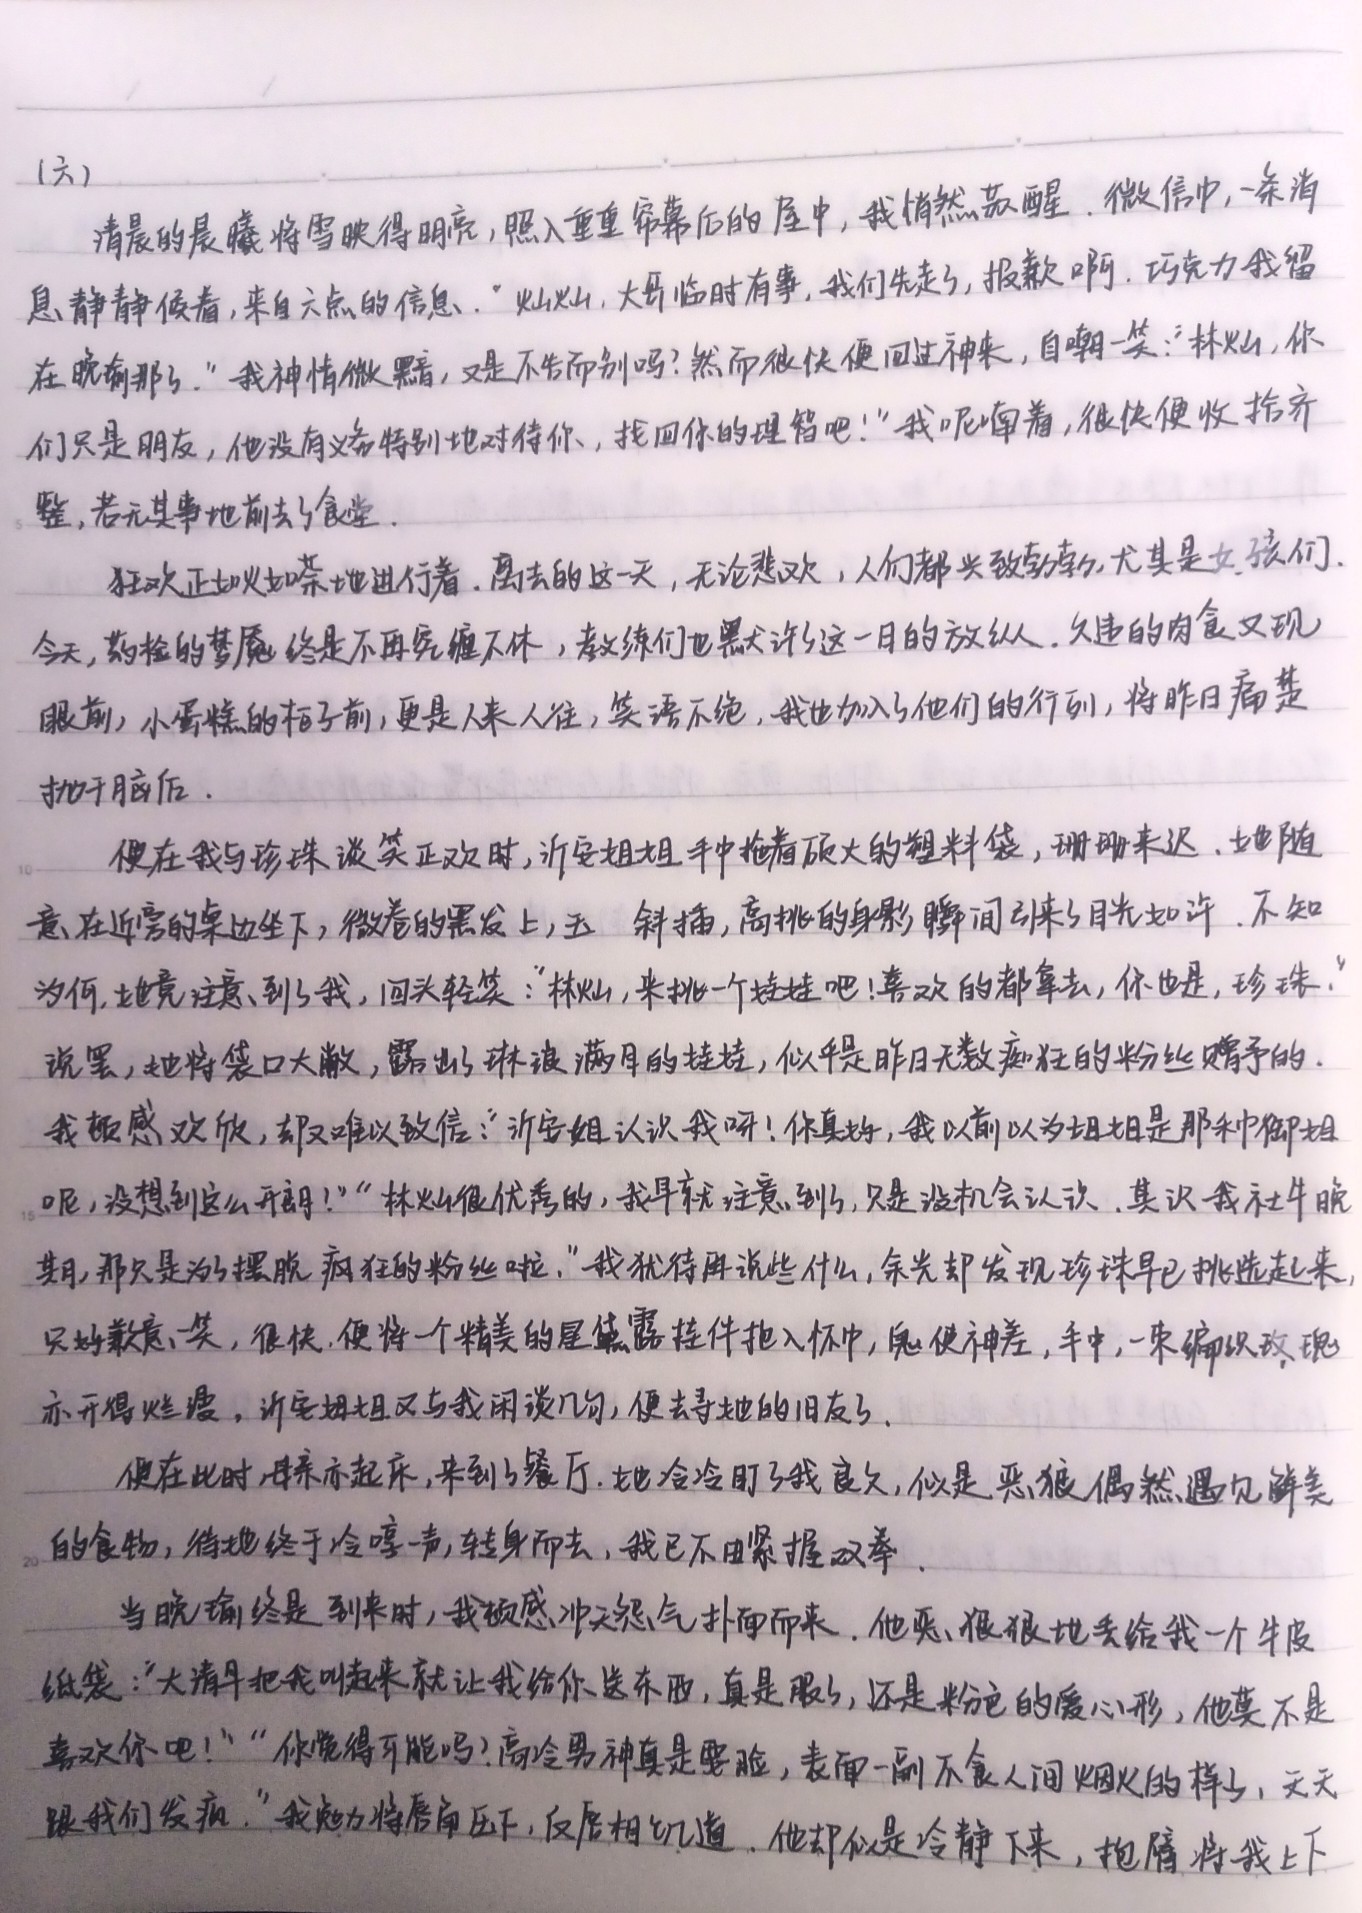 (六)
清晨的晨曦将雪映得明亮,照入重重帘幕后的屋中,我悄然苏醒.微信中,一条消
息静静候着,来自六点的信息."灿灿,大哥临时有事,我们先走了,报歉啊.巧克力我留
在晚瑜那了."我神情微黯,又是不告而别吗?然而很快便回过神来,自嘲一笑:"林灿,你
们只是朋友,他没有义务特别地对待你,找回你的理智吧!"我呢喃着,很快便收拾齐
整,若无其事地前去了食堂.
狂欢正如火如荼地进行着.离去的这一天,无论悲欢,人们都兴致勃勃,尤其是女孩们.
今天,药检的梦魇终是不再纠缠不休,教练们也默许了这一日的放纵.久违的肉食又现
眼前,小蛋糕的柜子前,更是人来人往,笑语不绝,我也加入了他们的行列,将昨日痛楚
抛于脑后.
便在我与珍珠谈笑正欢时,沂安姐姐手中拖着硕大的塑料袋,珊珊来迟.她随
意在近旁的桌边坐下,微卷的黑发上,玉 斜插,高挑的身影瞬间引来了目光如许.不知
为何,她竟注意到了我,回头轻笑:"林灿,来挑一个娃娃吧!喜欢的都拿去,你也是,珍珠."
说罢,她将袋口大敞,露出了琳琅满目的娃娃,似乎是昨日无数痴狂的粉丝赠予的.
我顿感欢欣,却又难以致信:"沂安姐认识我呀!你真好,我以前以为姐姐是那种御姐
呢,没想到这么开朗!""林灿很优秀的,我早就注意到了,只是没机会认识.其识我社牛晚
期,那只是为了摆脱疯狂的粉丝啦."我犹待再说些什么,余光却发现珍珠早已挑选起来,
只好歉意一笑,很快,便将一个精美的星黛露挂件抱入怀中,鬼使神差,手中,一束编织玫瑰
亦开得烂漫.沂安姐姐又与我闲谈几句,便去寻她的旧友了.
便在此时,母亲亦起床,来到了餐厅.她冷冷盯了我良久,似是恶狼偶然遇见鲜美
的食物,待她终于冷哼一声,转身而去,我已不由紧握双拳.
当晚瑜终是到来时,我顿感冲天怨气扑面而来.他恶狠狠地丢给我一个牛皮
纸袋:"大清早把我叫起来就让我给你送东西,真是服了,还是粉色的爱心形,他莫不是
喜欢你吧!""你觉得可能吗?高冷男神真是要脸,表面一副不食人间烟火的样子,天天
跟我们发疯."我勉力将唇角压下,反唇相讥道.他却似是冷静下来,抱臂将我上下